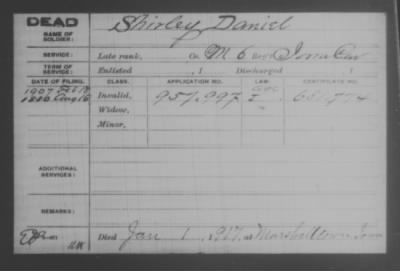 DEAD
NAME OF SOLDIER:
Shirley Daniel
SERVICE:
Late rank, Co. M 6 Reg't Iowa Cav
TERM OF SERVICE:
Enlisted , 1 Discharged , 1
DATE OF FILING. CLASS. APPLICATION NO. LAW. CERTIFICATE NO.
1907 Feb
1890 Aug 16 Invalid, 957.997
Widow,
Minor,
ADDITIONAL SERVICES:
REMARKS:
Died Jan 1, 1917, at Marshalltown Iowa